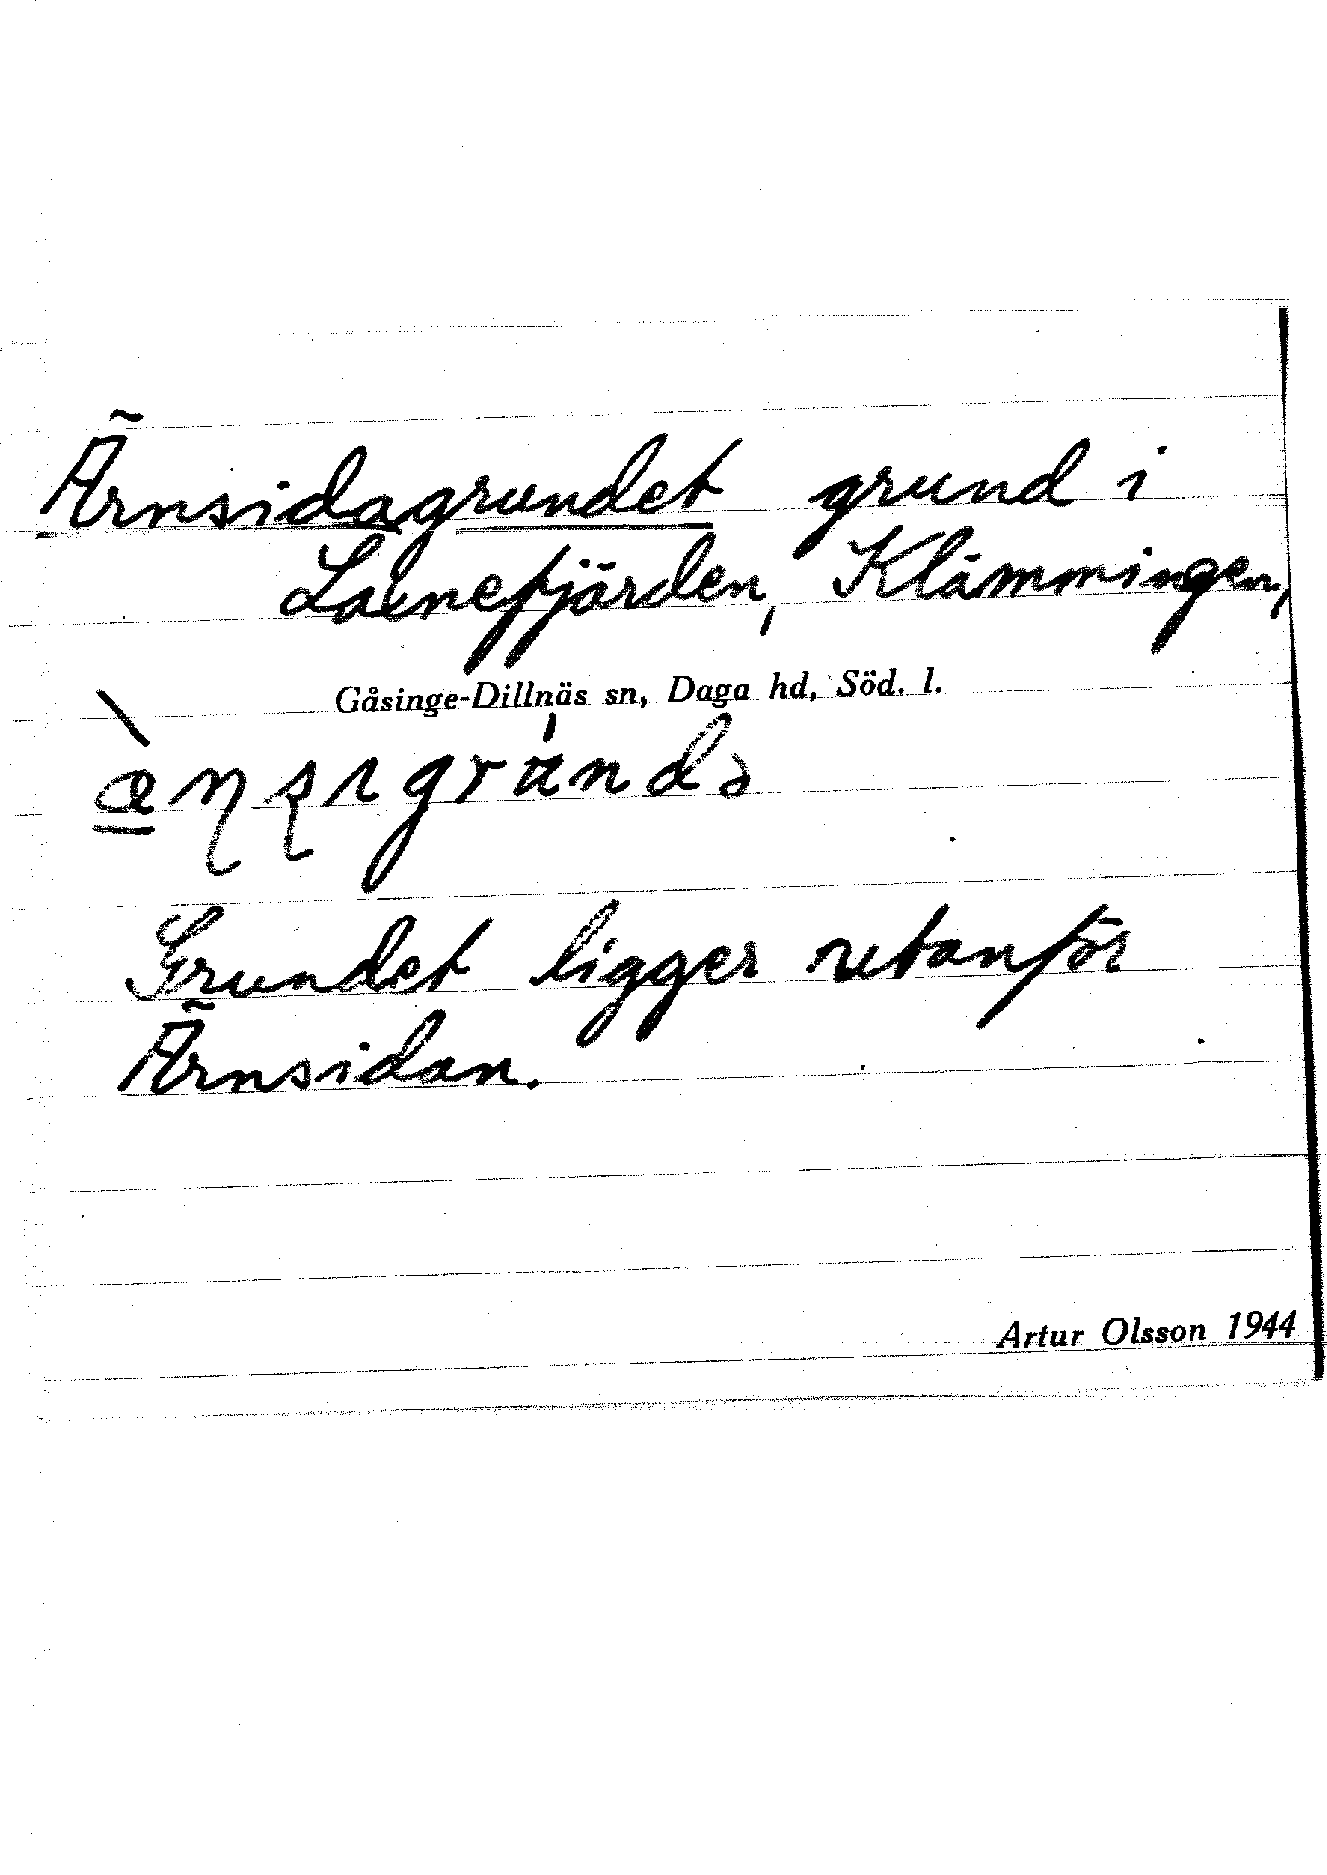 Ärnsidagrundet grund i
Lainefjärden, Klämmingen,
Gåsinge-Dillnäs sn, Daga hd, Söd. l.
Grundet ligger utanför
Ärnsidan.
Artur Olsson 1944